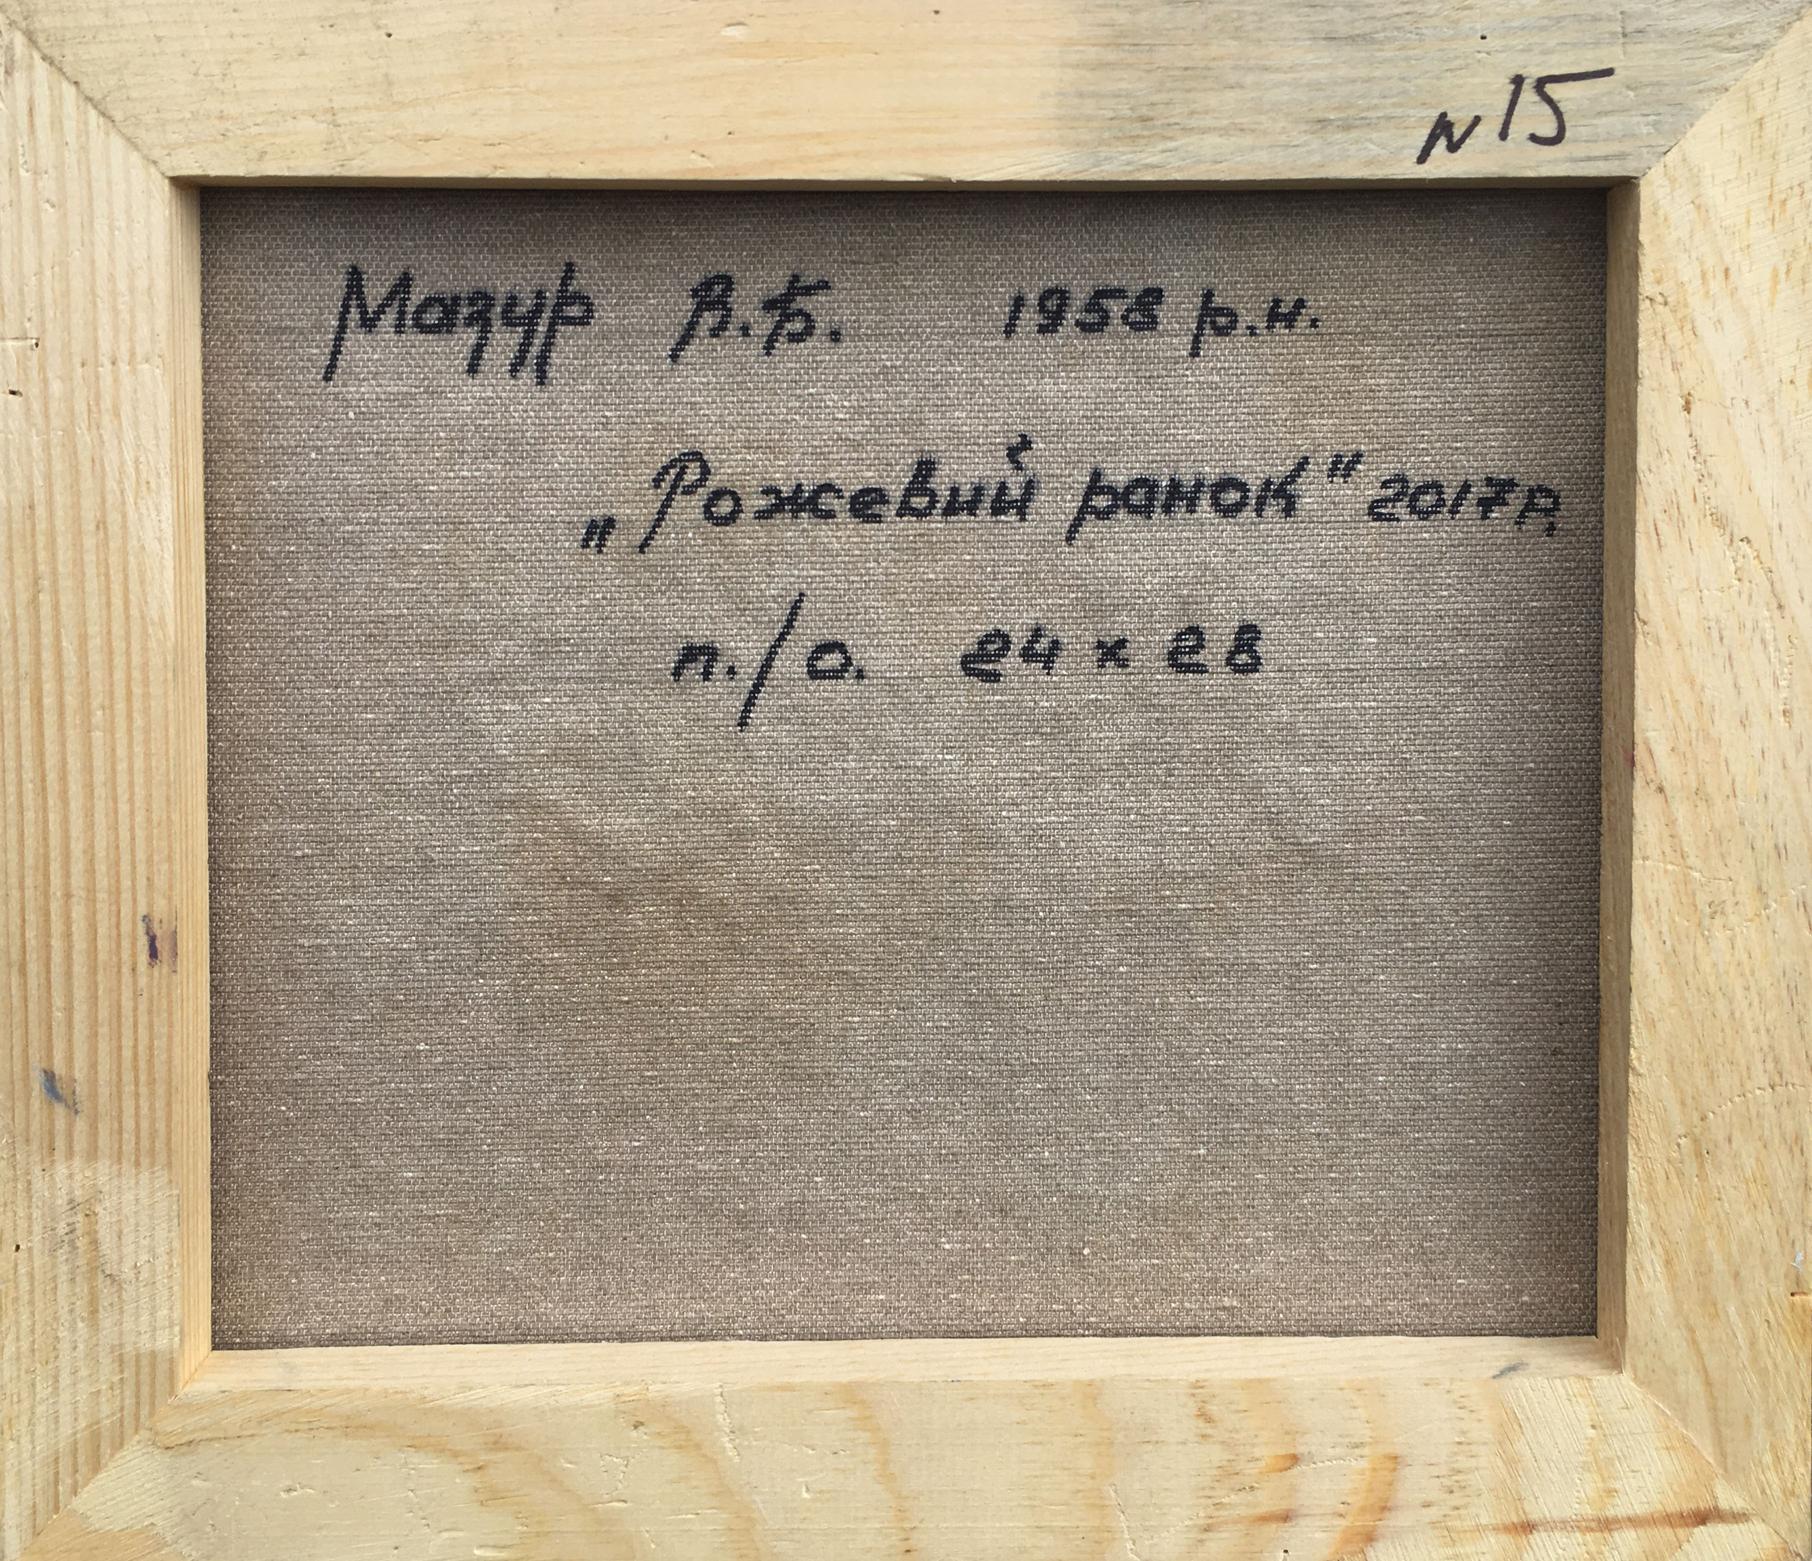 N 15
Мазур В.Б. 1958 р.н.
„Рожевий ранок" 2017р.
п./о. 24 x 28